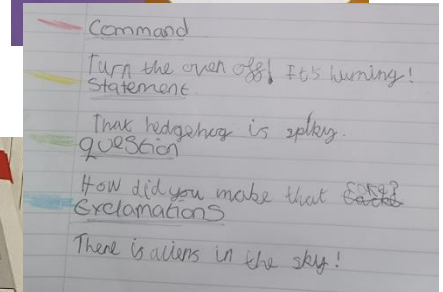 Command
Turn the oven off! It's burning!
Statement
That hedgehog is spiky.
question
How did you make that
Exclamations
There is aliens in the sky!